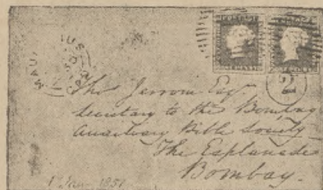 MAURITIUS
2
Thos Jerrom Esqr
Secretary to the Bombay
Auxiliary Bible Society
The Esplanade
Bombay.